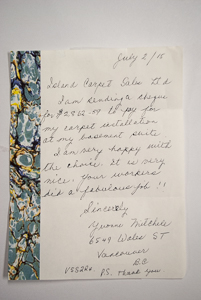 July 2/15
Island Carpet Sales Ltd
I am sending a cheque
for $2862.59 to pay for
my carpet installation
at my basement suite
I am very happy with
the choice. It is very
nice. Your workers
did a fabulous job !!
Sincerely
Yvonne Mitchell
6549 Wales ST
Vancouver
B.C.
P.S. thank you